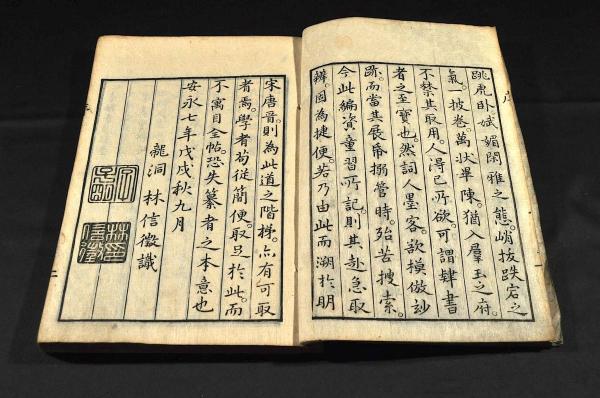 跳虎卧娬媚閑雅之態。峭拔跌宕之
氣。一披卷。萬狀畢陳。猶入羣玉之府。
不禁其取用。人得已所欲。可謂肆書
者之至寶也。然詞人墨客。欲摸倣鈔
跡。而當其展帋搦管時。殆苦捜索。
今此編資童習所記。則其赴急取
辨。固為捷便。若乃由此而溯於明
宋唐晋。則為此道之階梯。亦有可取
者焉。學者苟從簡便。取足於此。而
不寓目全帖。恐失纂者之本意也
安永七年戊戌秋九月
龍洞 林信徵識
林印信徵